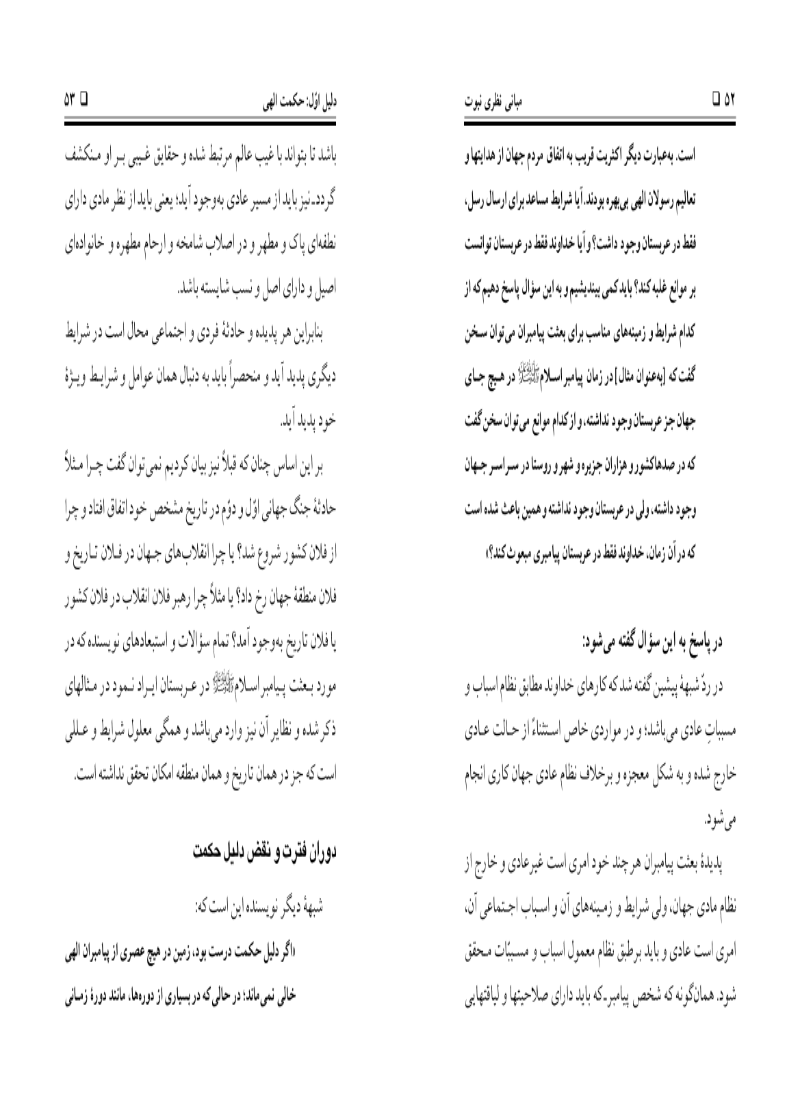 ۵۲ □ مبانی نظری نبوت
است. به‌عبارت دیگر اکثریت قریب به اتفاق مردم جهان از هدایتها و
تعالیم رسولان الهی بی‌بهره بودند. آیا شرایط مساعد برای ارسال رسل،
فقط در عربستان وجود داشت؟ و آیا خداوند فقط در عربستان توانست
بر موانع غلبه کند؟ باید کمی بیندیشیم و به این سؤال پاسخ دهیم که از
کدام شرایط و زمینه‌های مناسب برای بعثت پیامبران می‌توان سخن
گفت که [به‌عنوان مثال] در زمان پیامبر اسلامﷺ در هیچ جای
جهان جز عربستان وجود نداشته، و از کدام موانع می‌توان سخن گفت
که در صدها کشور و هزاران جزیره و شهر و روستا در سراسر جهان
وجود داشته، ولی در عربستان وجود نداشته و همین باعث شده است
که در آن زمان، خداوند فقط در عربستان پیامبری مبعوث کند؟»
در پاسخ به این سؤال گفته می‌شود:
در ردّ شبههٔ پیشین گفته شد که کارهای خداوند مطابق نظام اسباب و
مسبباتِ عادی می‌باشد؛ و در مواردی خاص استثناءً از حالت عادی
خارج شده و به شکل معجزه و برخلاف نظام عادی جهان کاری انجام
می‌شود.
پدیدهٔ بعثت پیامبران هر چند خود امری است غیرعادی و خارج از
نظام مادی جهان، ولی شرایط و زمینه‌های آن و اسباب اجتماعی آن،
امری است عادی و باید برطبق نظام معمول اسباب و مسبّبات محقق
شود. همان‌گونه که شخص پیامبر ـ که باید دارای صلاحیتها و لیاقتهایی
دلیل اوّل: حکمت الهی □ ۵۳
باشد تا بتواند با غیب عالم مرتبط شده و حقایق غیبی بر او منکشف
گردد ـ نیز باید از مسیر عادی به‌وجود آید؛ یعنی باید از نظر مادی دارای
نطفه‌ای پاک و مطهر و در اصلاب شامخه و ارحام مطهره و خانواده‌ای
اصیل و دارای اصل و نسب شایسته باشد.
بنابراین هر پدیده و حادثهٔ فردی و اجتماعی محال است در شرایط
دیگری پدید آید و منحصراً باید به دنبال همان عوامل و شرایط ویژهٔ
خود پدید آید.
بر این اساس چنان که قبلاً نیز بیان کردیم نمی‌توان گفت چرا مثلاً
حادثهٔ جنگ جهانی اوّل و دوّم در تاریخ مشخص خود اتفاق افتاد و چرا
از فلان کشور شروع شد؟ یا چرا انقلاب‌های جهان در فلان تاریخ و
فلان منطقهٔ جهان رخ داد؟ یا مثلاً چرا رهبر فلان انقلاب در فلان کشور
یا فلان تاریخ به‌وجود آمد؟ تمام سؤالات و استبعادهای نویسنده که در
مورد بعثت پیامبر اسلامﷺ در عربستان ایراد نمود در مثالهای
ذکر شده و نظایر آن نیز وارد می‌باشد و همگی معلول شرایط و عللی
است که جز در همان تاریخ و همان منطقه امکان تحقق نداشته است.
دوران فترت و نقض دلیل حکمت
شبههٔ دیگر نویسنده این است که:
«اگر دلیل حکمت درست بود، زمین در هیچ عصری از پیامبران الهی
خالی نمی‌ماند؛ در حالی که در بسیاری از دوره‌ها، مانند دورهٔ زمانی